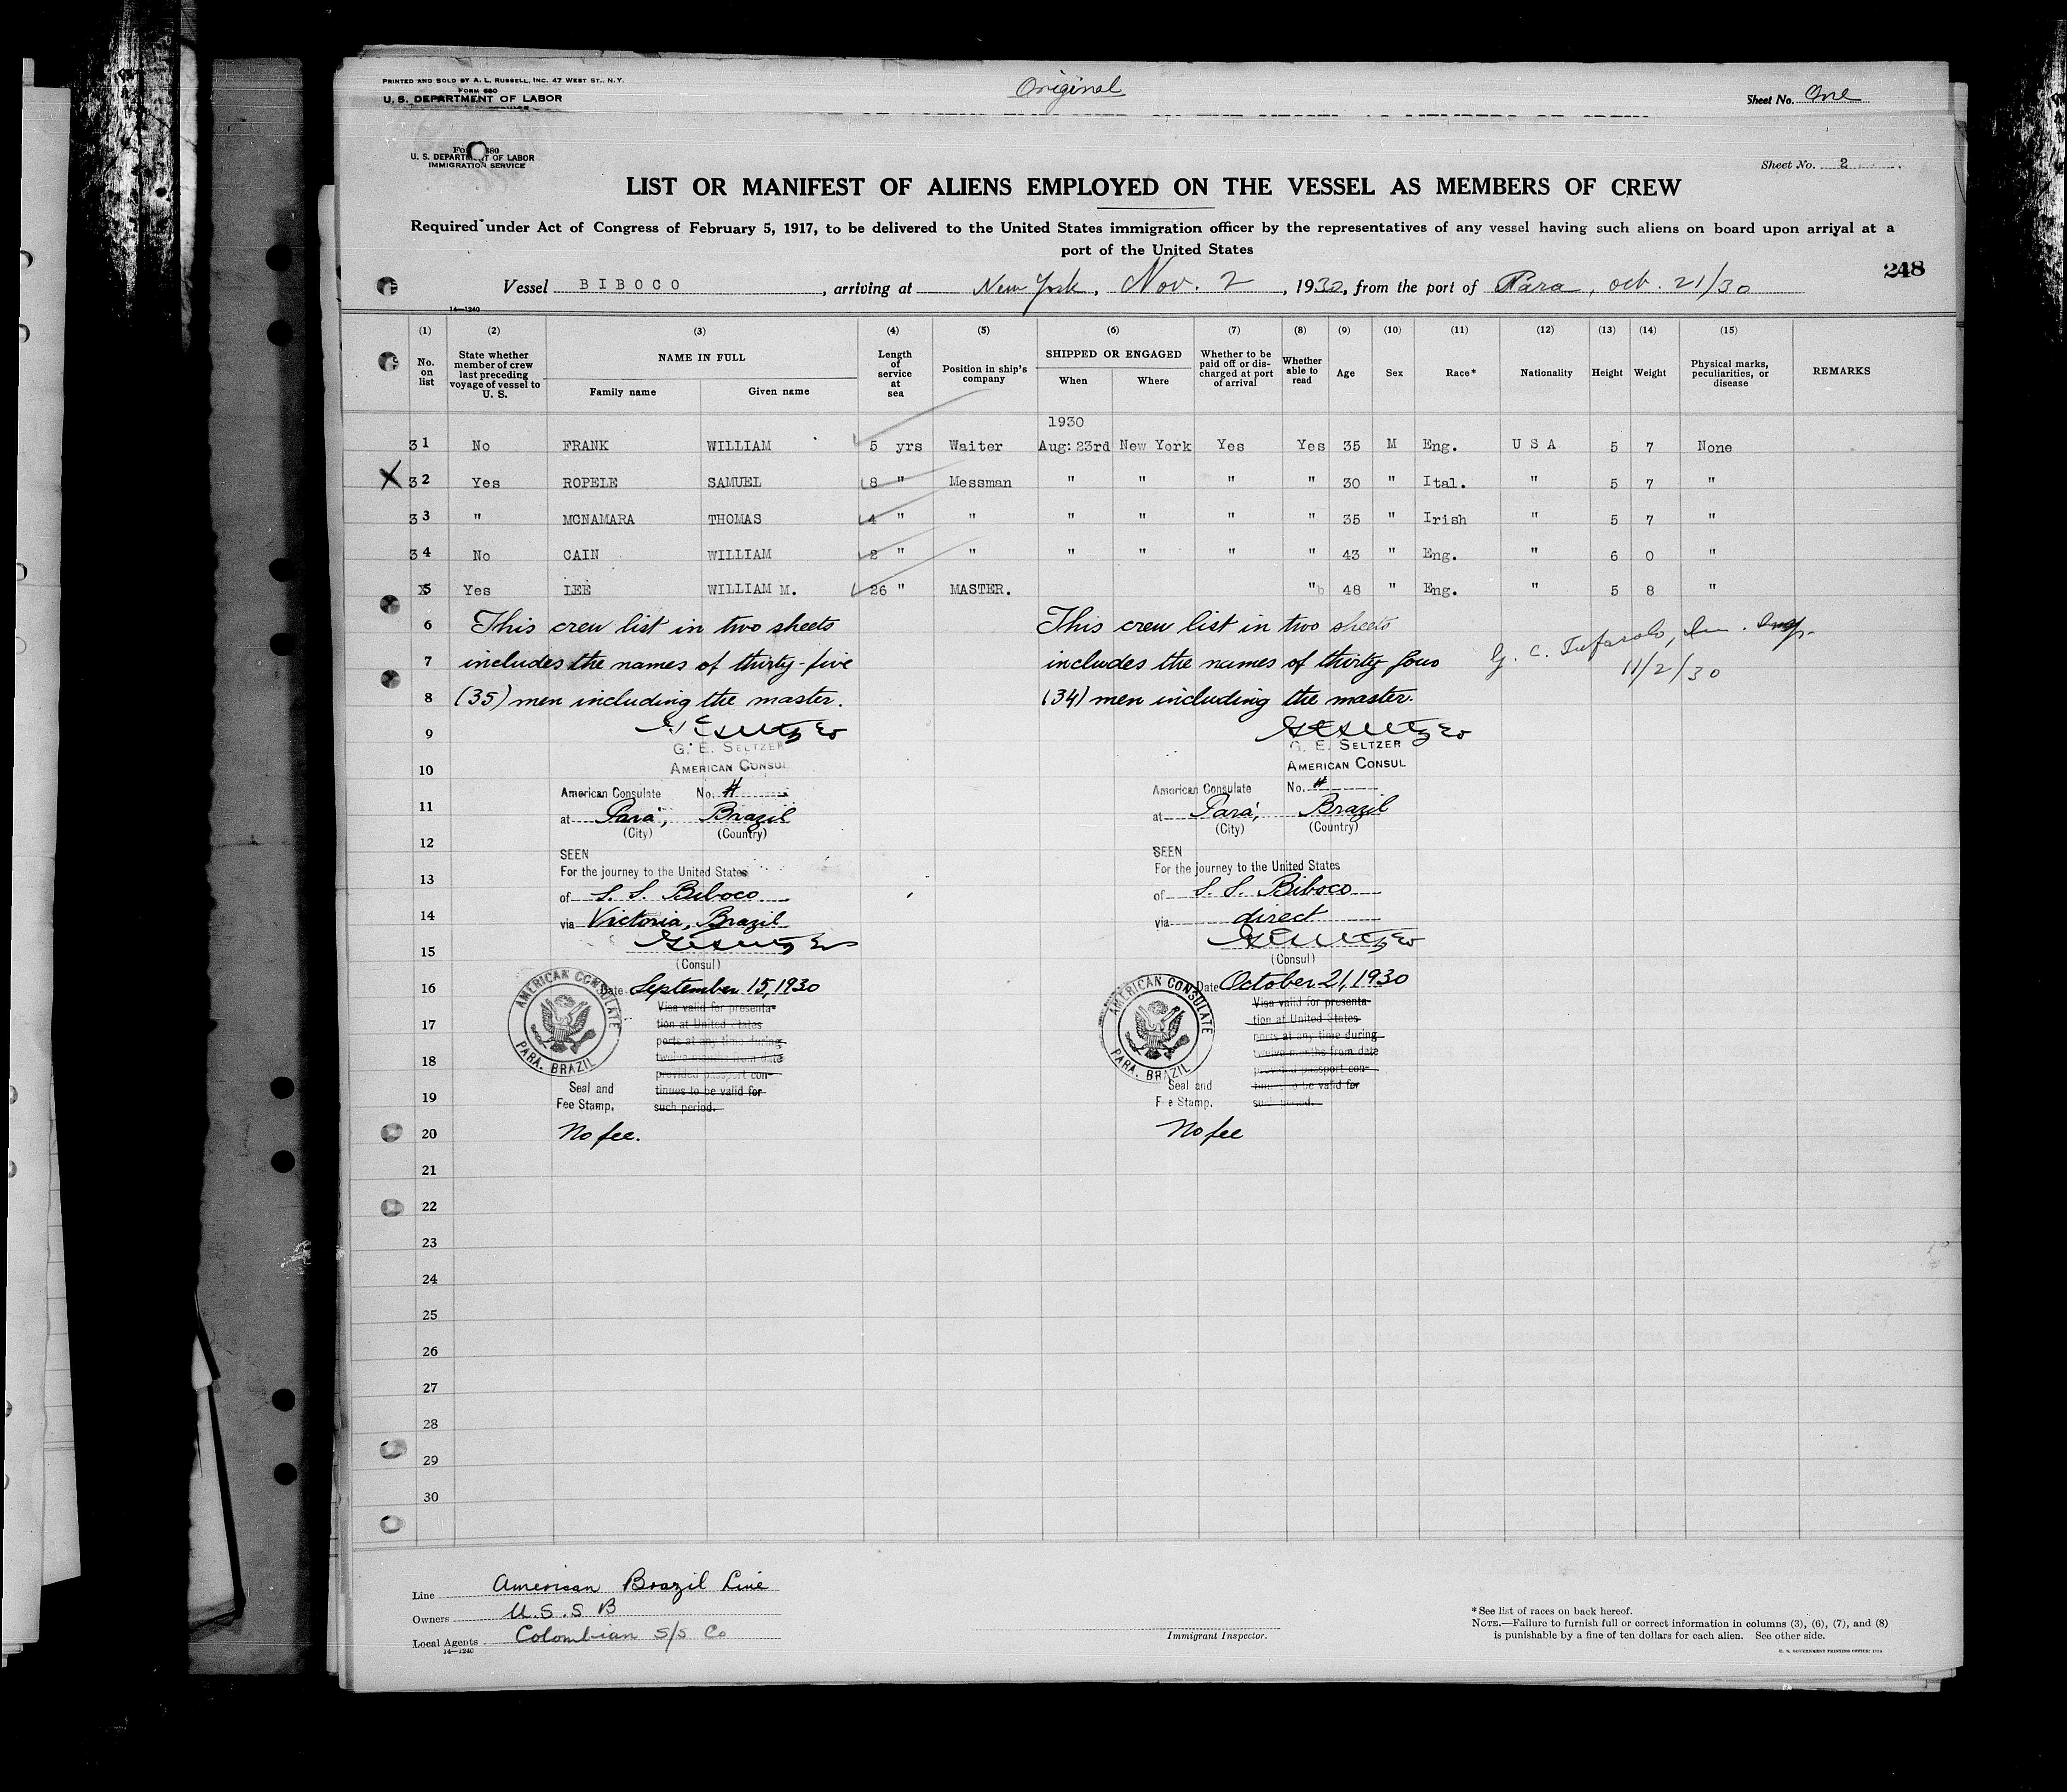 PRINTED AND SOLD BY A. L. RUSSELL, INC. 47 WEST ST., N.Y.
FORM 680
U. S. DEPARTMENT OF LABOR
Original
Sheet No. One
U. S. DEPARTMENT OF LABOR
IMMIGRATION SERVICE
Sheet No. 2
LIST OR MANIFEST OF ALIENS EMPLOYED ON THE VESSEL AS MEMBERS OF CREW
Required under Act of Congress of February 5, 1917, to be delivered to the United States immigration officer by the representatives of any vessel having such aliens on board upon arrival at a
port of the United States
248
Vessel BIBOCO, arriving at New York, Nov. 2, 1930, from the port of Para, oct. 21/30
14—1240
(1) (2) (3) (4) (5) (6) (7) (8) (9) (10) (11) (12) (13) (14) (15)
No. on list State whether member of crew last preceding voyage of vessel to U. S. NAME IN FULL Family name Given name Length of service at sea Position in ship's company SHIPPED OR ENGAGED When Where Whether to be paid off or discharged at port of arrival Whether able to read Age Sex Race* Nationality Height Weight Physical marks, peculiarities, or disease REMARKS
1930
31 No FRANK WILLIAM 5 yrs Waiter Aug: 23rd New York Yes Yes 35 M Eng. U S A 5 7 None
X 32 Yes ROPELE SAMUEL 8 " Messman " " " " 30 " Ital. " 5 7 "
33 " MCNAMARA THOMAS 4 " " " " " " 35 " Irish " 5 7 "
34 No CAIN WILLIAM 2 " " " " " " 43 " Eng. " 6 0 "
5 Yes LEE WILLIAM M. 26 " MASTER. " 48 " Eng. " 5 8 "
6 This crew list in two sheets This crew list in two sheets
7 includes the names of thirty-five includes the names of thirty four G. C.
11/2/30
8 (35) men including the master. (34) men including the master.
9
G. E. SELTZER G. E. SELTZER
10 AMERICAN CONSUL AMERICAN CONSUL
American Consulate No. # American Consulate No. #
11 at Pará, Brazil at Pará, Brazil
(City) (Country) (City) (Country)
12
SEEN SEEN
For the journey to the United States For the journey to the United States
13
of S. S. Biboco of S. S. Biboco
14 via Victoria, Brazil via direct
15
(Consul) (Consul)
16 Date September 15, 1930 Date October 21, 1930
AMERICAN CONSULATE PARA. BRAZIL AMERICAN CONSULATE PARA. BRAZIL
Visa valid for presenta- Visa valid for presenta-
17 tion at United States tion at United States
ports at any time during ports at any time during
18 twelve months from date twelve months from date
provided passport con- provided passport con-
Seal and tinues to be valid for Seal and tinues to be valid for
19 Fee Stamp. such period. Fee Stamp. such period.
20 No fee. No fee
21
22
23
24
25
26
27
28
29
30
Line American Brazil Line
Owners U.S.S B
Local Agents Colombian S/S Co
14—1240
Immigrant Inspector.
*See list of races on back hereof.
NOTE.—Failure to furnish full or correct information in columns (3), (6), (7), and (8)
is punishable by a fine of ten dollars for each alien. See other side.